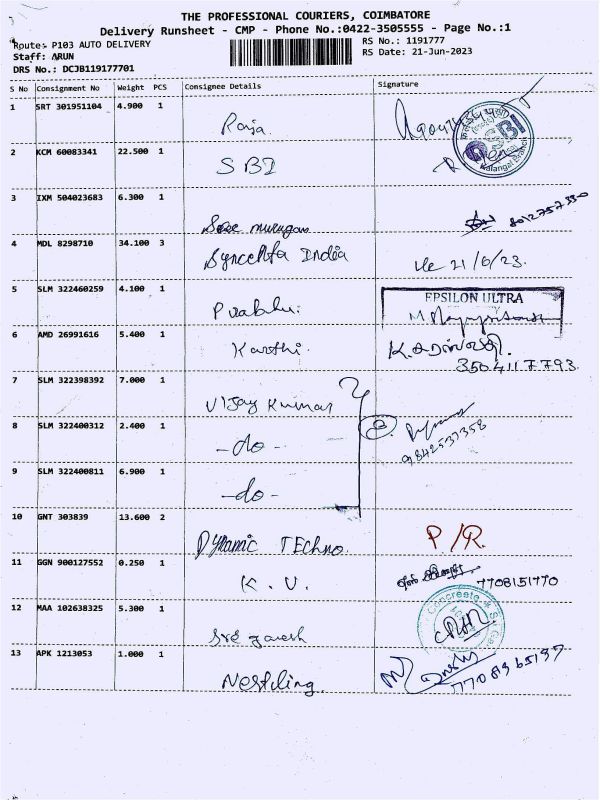 THE PROFESSIONAL COURIERS, COIMBATORE
Delivery Runsheet - CMP - Phone No.:0422-3505555 - Page No.:1
Route: P103 AUTO DELIVERY
RS No.: 1191777
Staff: ARUN
RS Date: 21-Jun-2023
DRS No.: DCJB119177701
S No Consignment No Weight PCS Consignee Details Signature
1 SRT 301951104 4.900 1
Raja
2 KCM 60083341 22.500 1
SBI
SBI
Kalangal Branch
3 IXM 504023683 6.300 1
murugan
4 MDL 8298710 34.100 3
India
21/6/23.
5 SLM 322460259 4.100 1
Prabhu.
EPSILON ULTRA
6 AMD 26991616 5.400 1
Karthi.
7 SLM 322398392 7.000 1
Vijay Kumar
8 SLM 322400312 2.400 1
-do-
9842537358
9 SLM 322400811 6.900 1
-do-
10 GNT 303839 13.600 2
Dynamic Techno.
P/R.
11 GGN 900127552 0.250 1
K.U.
7708151770
12 MAA 102638325 5.300 1
Sre ganesh
13 APK 1213053 1.000 1
Nestling.
7708965197